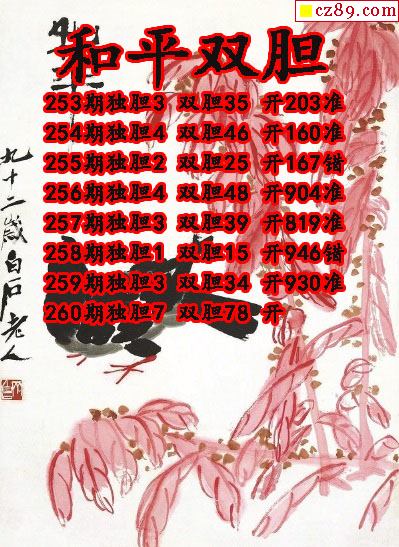 cz89.com
和平
和平双胆
253期独胆3 双胆35 开203准
254期独胆4 双胆46 开160准
255期独胆2 双胆25 开167错
256期独胆4 双胆48 开904准
257期独胆3 双胆39 开819准
258期独胆1 双胆15 开946错
259期独胆3 双胆34 开930准
260期独胆7 双胆78 开
九十二岁白石老人